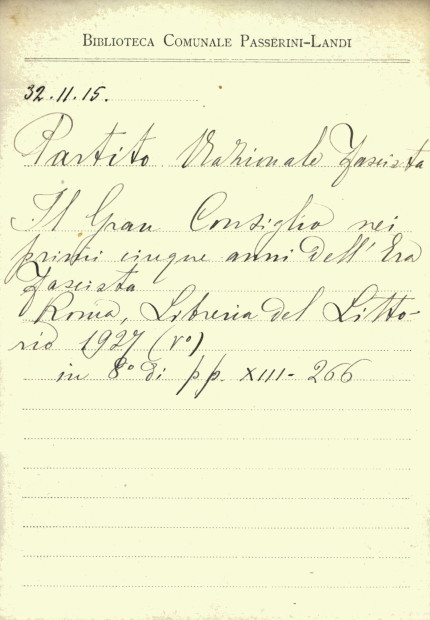 BIBLIOTECA COMUNALE PASSERINI-LANDI
32.11.15.
Partito Nazionale Fascista
Il Gran Consiglio nei
primi cinque anni dell'Era
Fascista
Roma, Libreria del Litto-
rio 1927 (Vº)
in 8º di pp. XIII-266